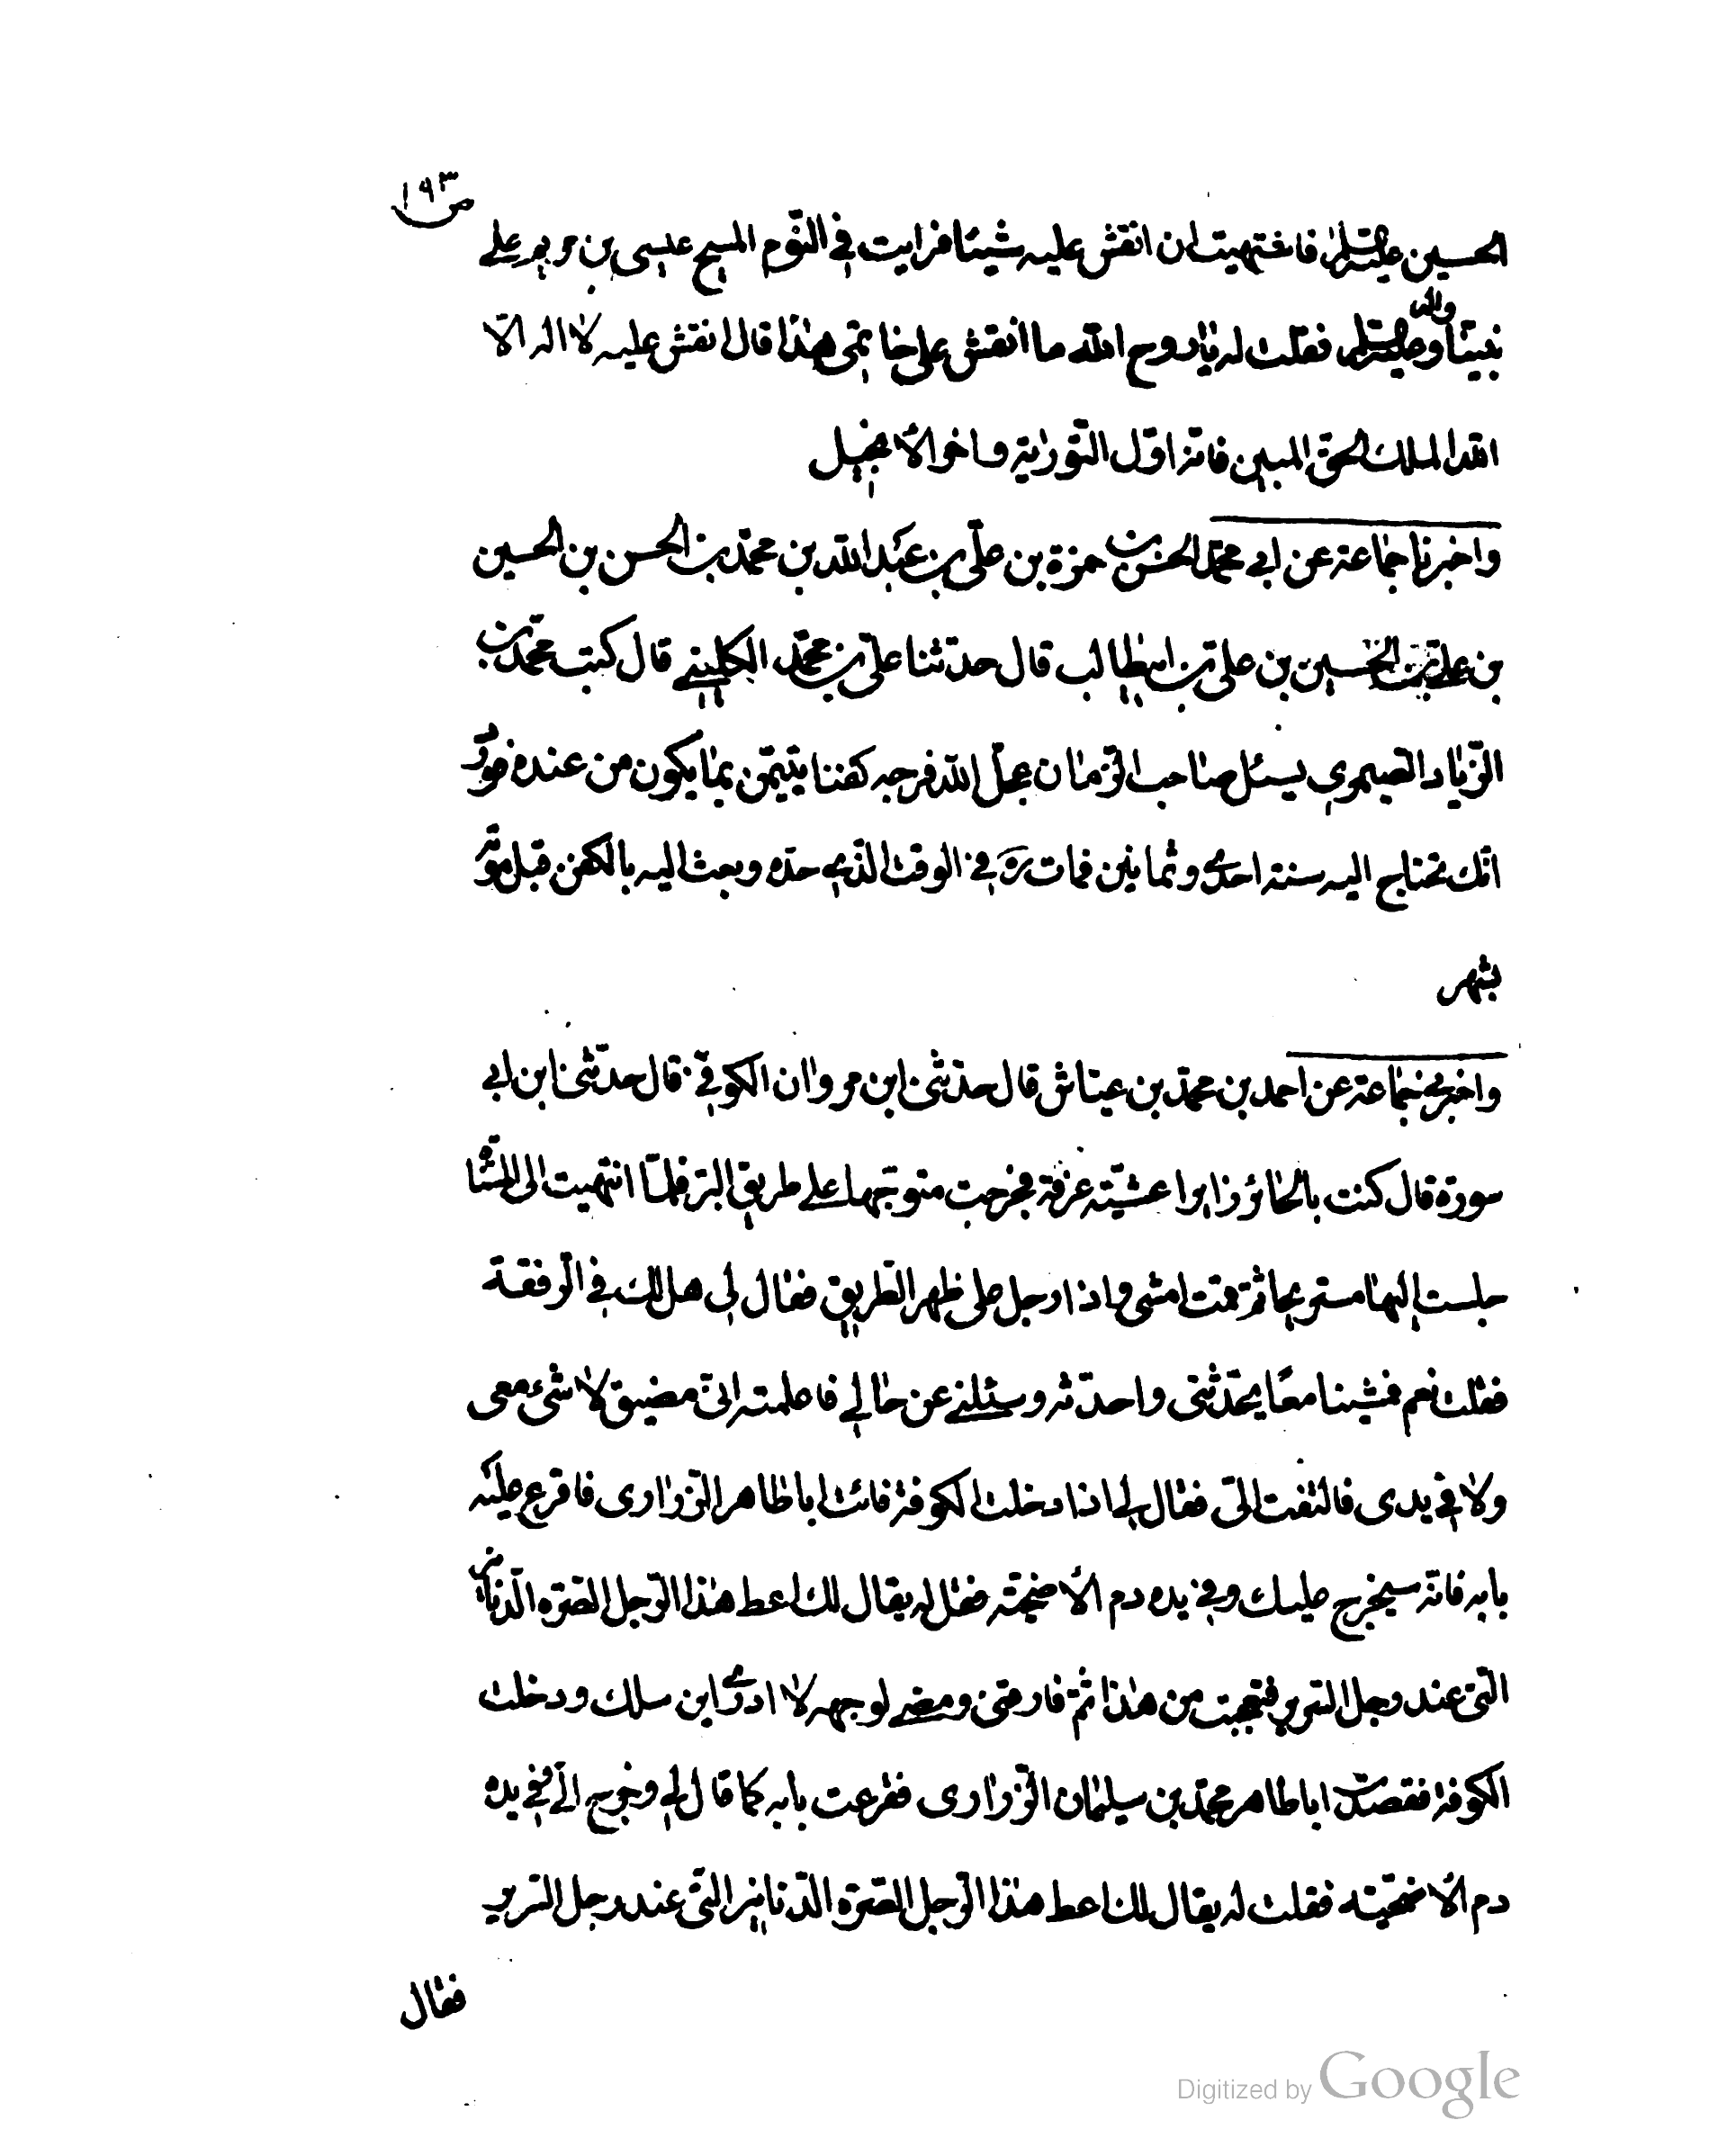 ص ١٩٣
الحسين عليه السلام فاشتهيت ان انقش عليه شيئا فرايت في النوم المسيح عيسى بن مريم على
نبينا واله وعليه السلام فقلت له يا روح الله ما انقش على خاتمي هذا قال انقش عليه لا اله الا
الله الملك الحق المبين فانه اول التورية واخر الانجيل
واخبرنا جماعة عن ابي محمد الحسن بن حمزة بن علي بن عبد الله بن محمد بن الحسن بن الحسين
بن علي بن الحسين بن علي بن ابيطالب قال حدثنا علي بن محمد الكليني قال كتب محمد بن
الزياد الصيمري يسئل صاحب الزمان عجل الله فرجه كفنا يتيمن بما يكون من عنده فورد
انك تحتاج اليه سنة احدى وثمانين فمات ره في الوقت الذي حده وبعث اليه بالكفن قبل موته
بشهر
واخبرني جماعة عن احمد بن محمد بن عياش قال حدثني ابن مروان الكوفي قال حدثني ابن ابي
سورة قال كنت بالحائر زايرا عشية عرفة فخرجت متوجها على طريق البر فلما انتهيت الى المسناة
جلست اليها مستريحا ثم قمت امشي واذا رجل على ظهر الطريق فقال لي هل لك في الرفقة
فقلت نعم فمشينا معا يحدثني واحدثه وسئلني عن حالي فاعلمته اني مضيق لا شيء معي
ولا في يدي فالتفت الي فقال لي اذا دخلت الكوفة فائت ابا طاهر الزراري فاقرع عليه
بابه فانه سيخرج عليك وفي يده دم الاضحية فقل له يقال لك اعط هذا الرجل الصرة الدنانير
التي عند رجل السرير فتعجبت من هذا ثم فارقني ومضى لوجهه لا ادري اين سلك ودخلت
الكوفة فقصدت ابا طاهر محمد بن سليمان الزراري فقرعت بابه كما قال لي وخرج الي وفي يده
دم الاضحية فقلت له يقال لك اعط هذا الرجل الصرة الدنانير التي عند رجل السرير
فقال
Digitized by Google